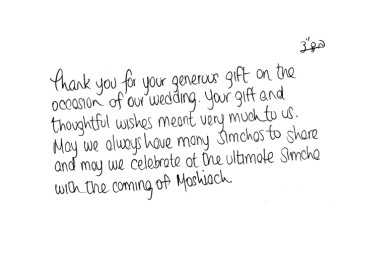 בס"ד
Thank you for your generous gift on the
occasion of our wedding. Your gift and
thoughtful wishes meant very much to us.
May we always have many Simchas to share
and may we celebrate at the ultimate Simcha
with the coming of Moshiach.